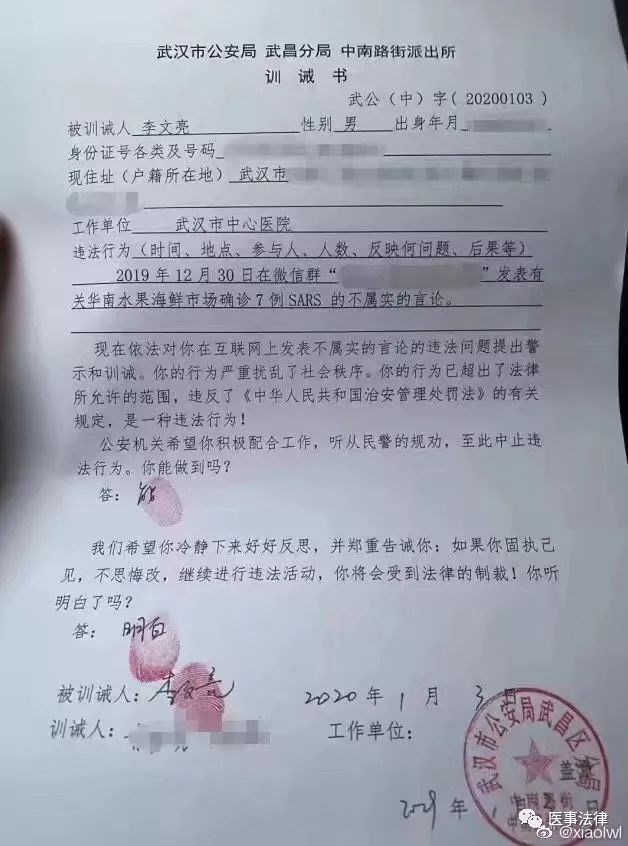 武汉市公安局 武昌分局 中南路街派出所
训 诫 书
武公（中）字（20200103）
被训诫人 李文亮 性别 男 出身年月
身份证号各类及号码
现住址（户籍所在地） 武汉市
工作单位 武汉市中心医院
违法行为（时间、地点、参与人、人数、反映何问题、后果等）
2019 年 12 月 30 日在微信群“ ”发表有
关华南水果海鲜市场确诊 7 例 SARS 的不属实的言论。
现在依法对你在互联网上发表不属实的言论的违法问题提出警
示和训诫。你的行为严重扰乱了社会秩序。你的行为已超出了法律
所允许的范围，违反了《中华人民共和国治安管理处罚法》的有关
规定，是一种违法行为！
公安机关希望你积极配合工作，听从民警的规劝，至此中止违
法行为。你能做到吗？
答： 能
我们希望你冷静下来好好反思，并郑重告诫你：如果你固执己
见，不思悔改，继续进行违法活动，你将会受到法律的制裁！你听
明白了吗？
答： 明白
被训诫人：李文亮 2020 年 1 月 3 日
训诫人： 工作单位：
武汉市公安局武昌区分局
盖章
年 1 日
医事法律
@xiaolwl